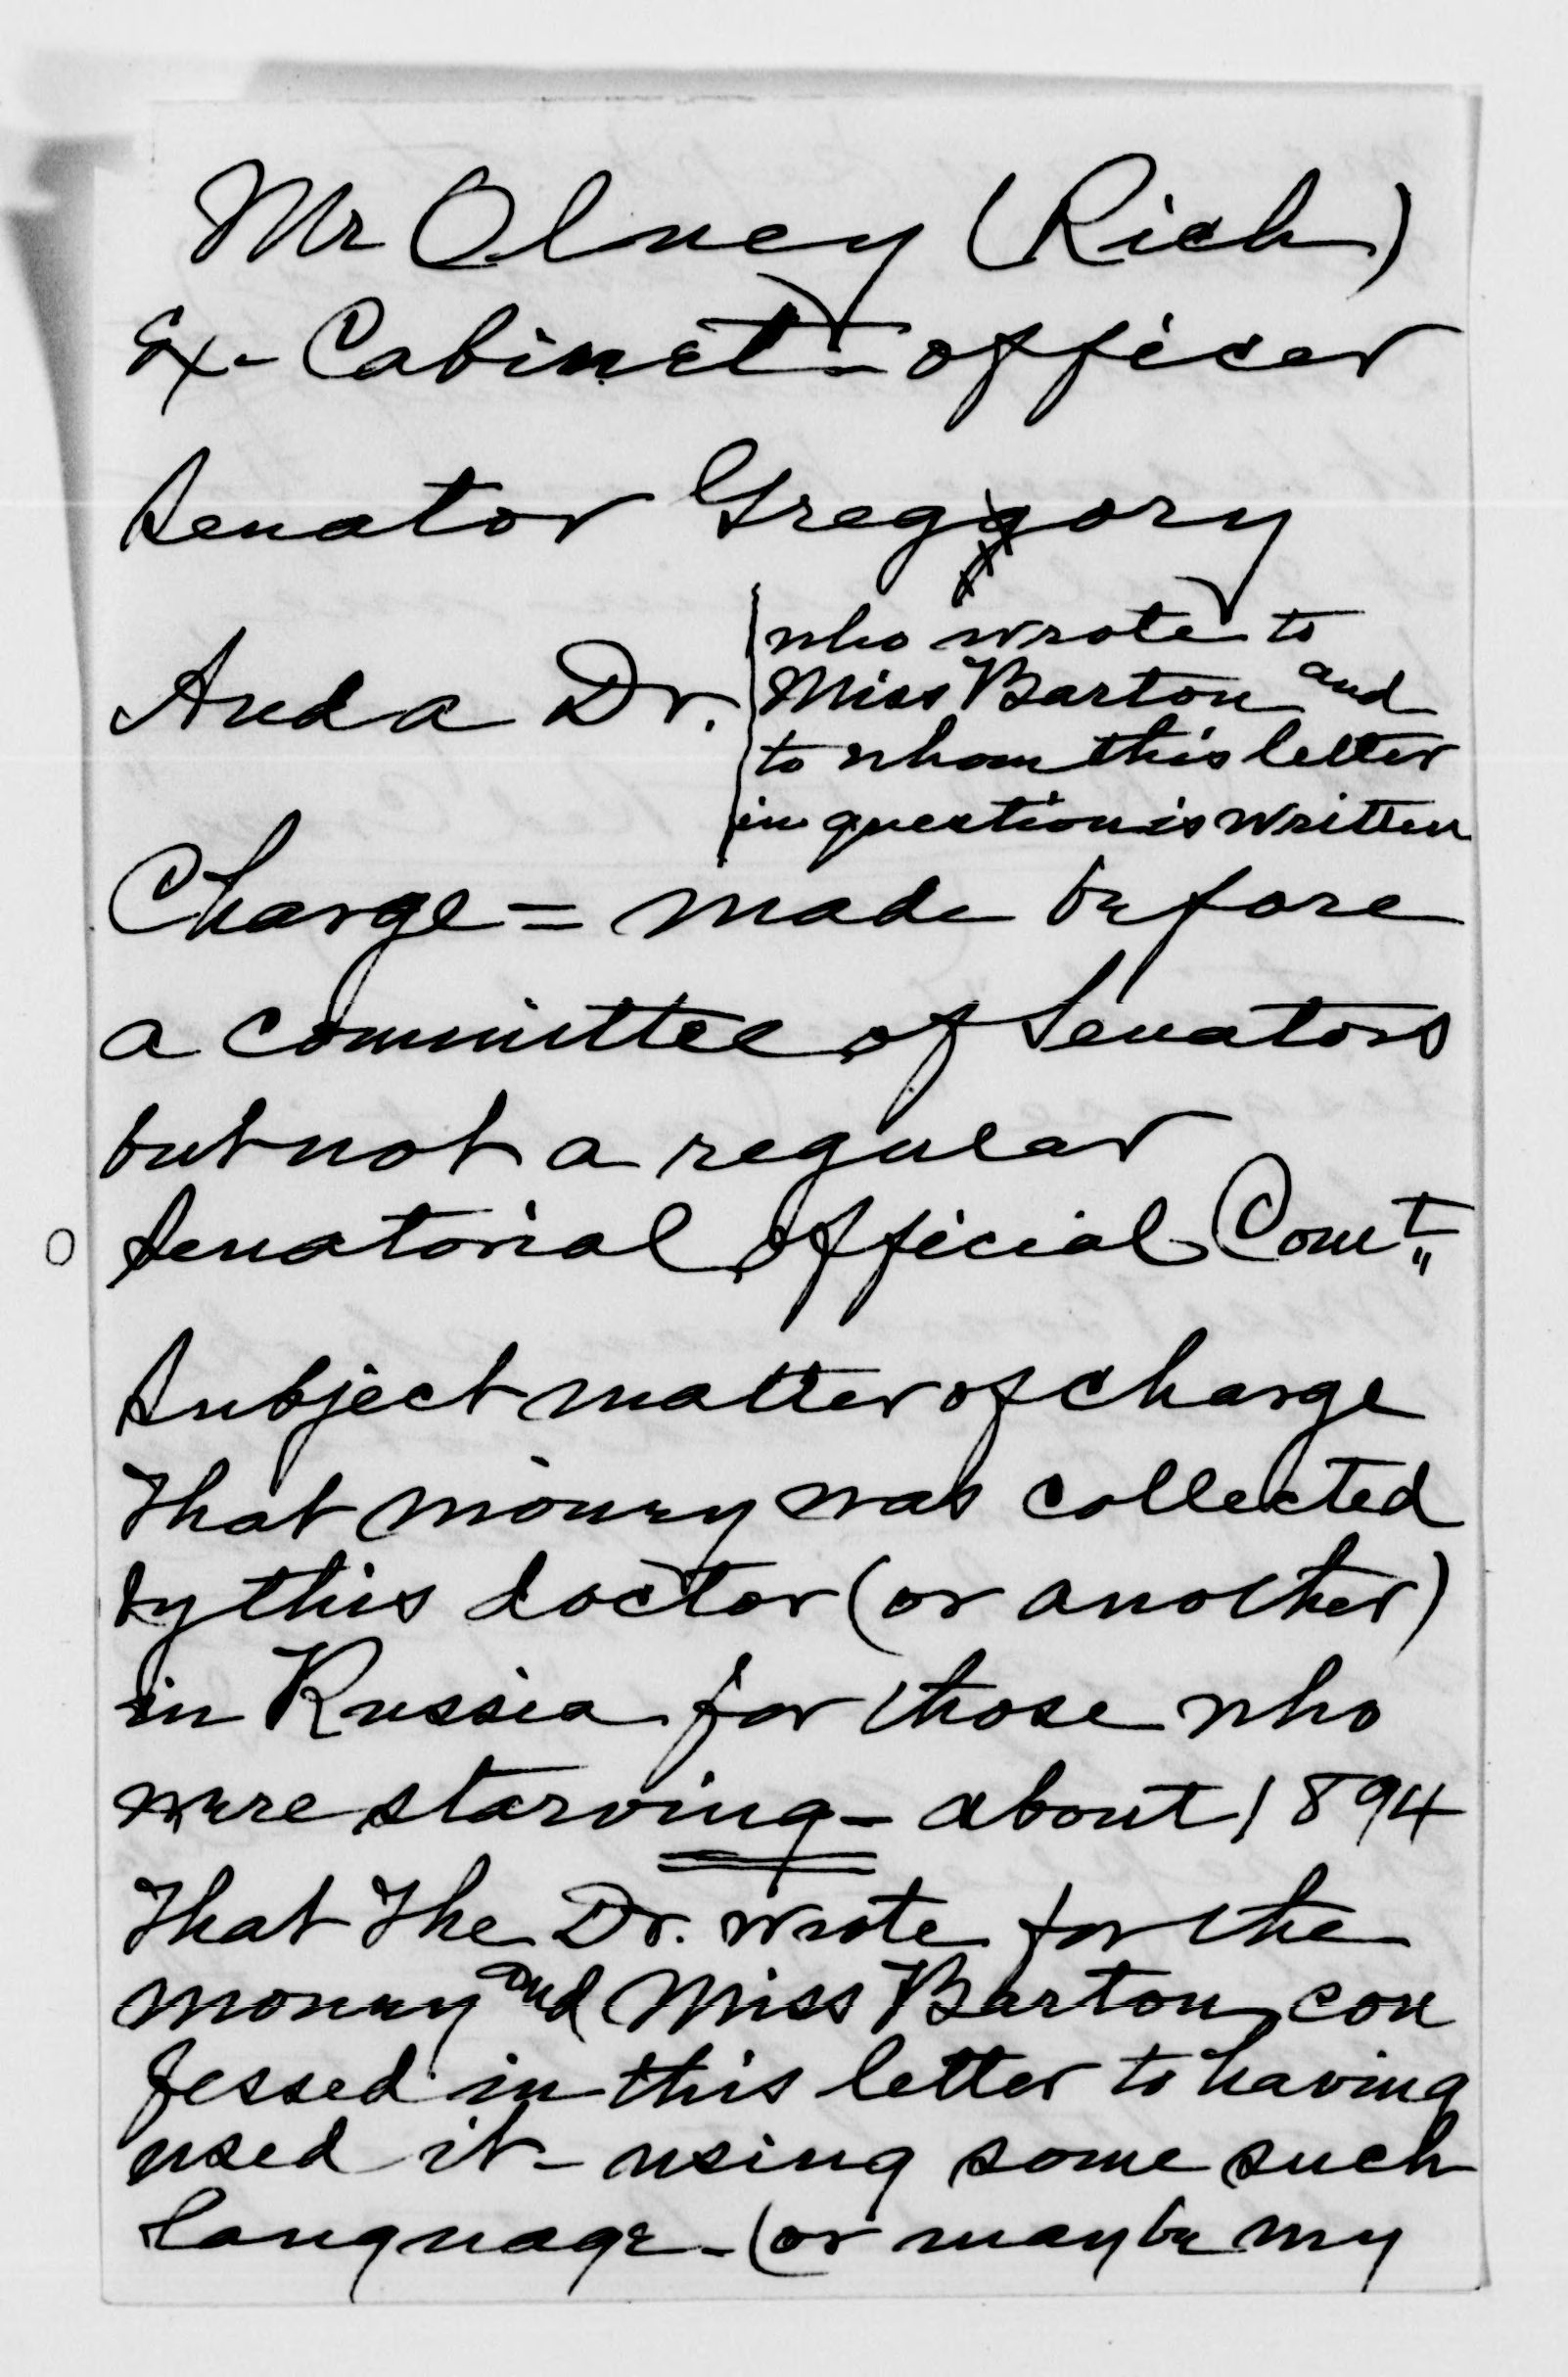 Mr Olney (Rich)
Ex-Cabinet-officer
Senator Greggory
And a Dr.
who wrote to
Miss Barton and
to whom this letter
in question is written
Charge = made before
a committee of Senators
but not a regular
Senatorial official Comt"
Subject matter of charge
That money was collected
by this doctor (or another)
in Russia for those who
were starving - about 1894
That The Dr. wrote for the
money and Miss Barton con
fessed in this letter to having
used it - using some such
language - (or maybe my